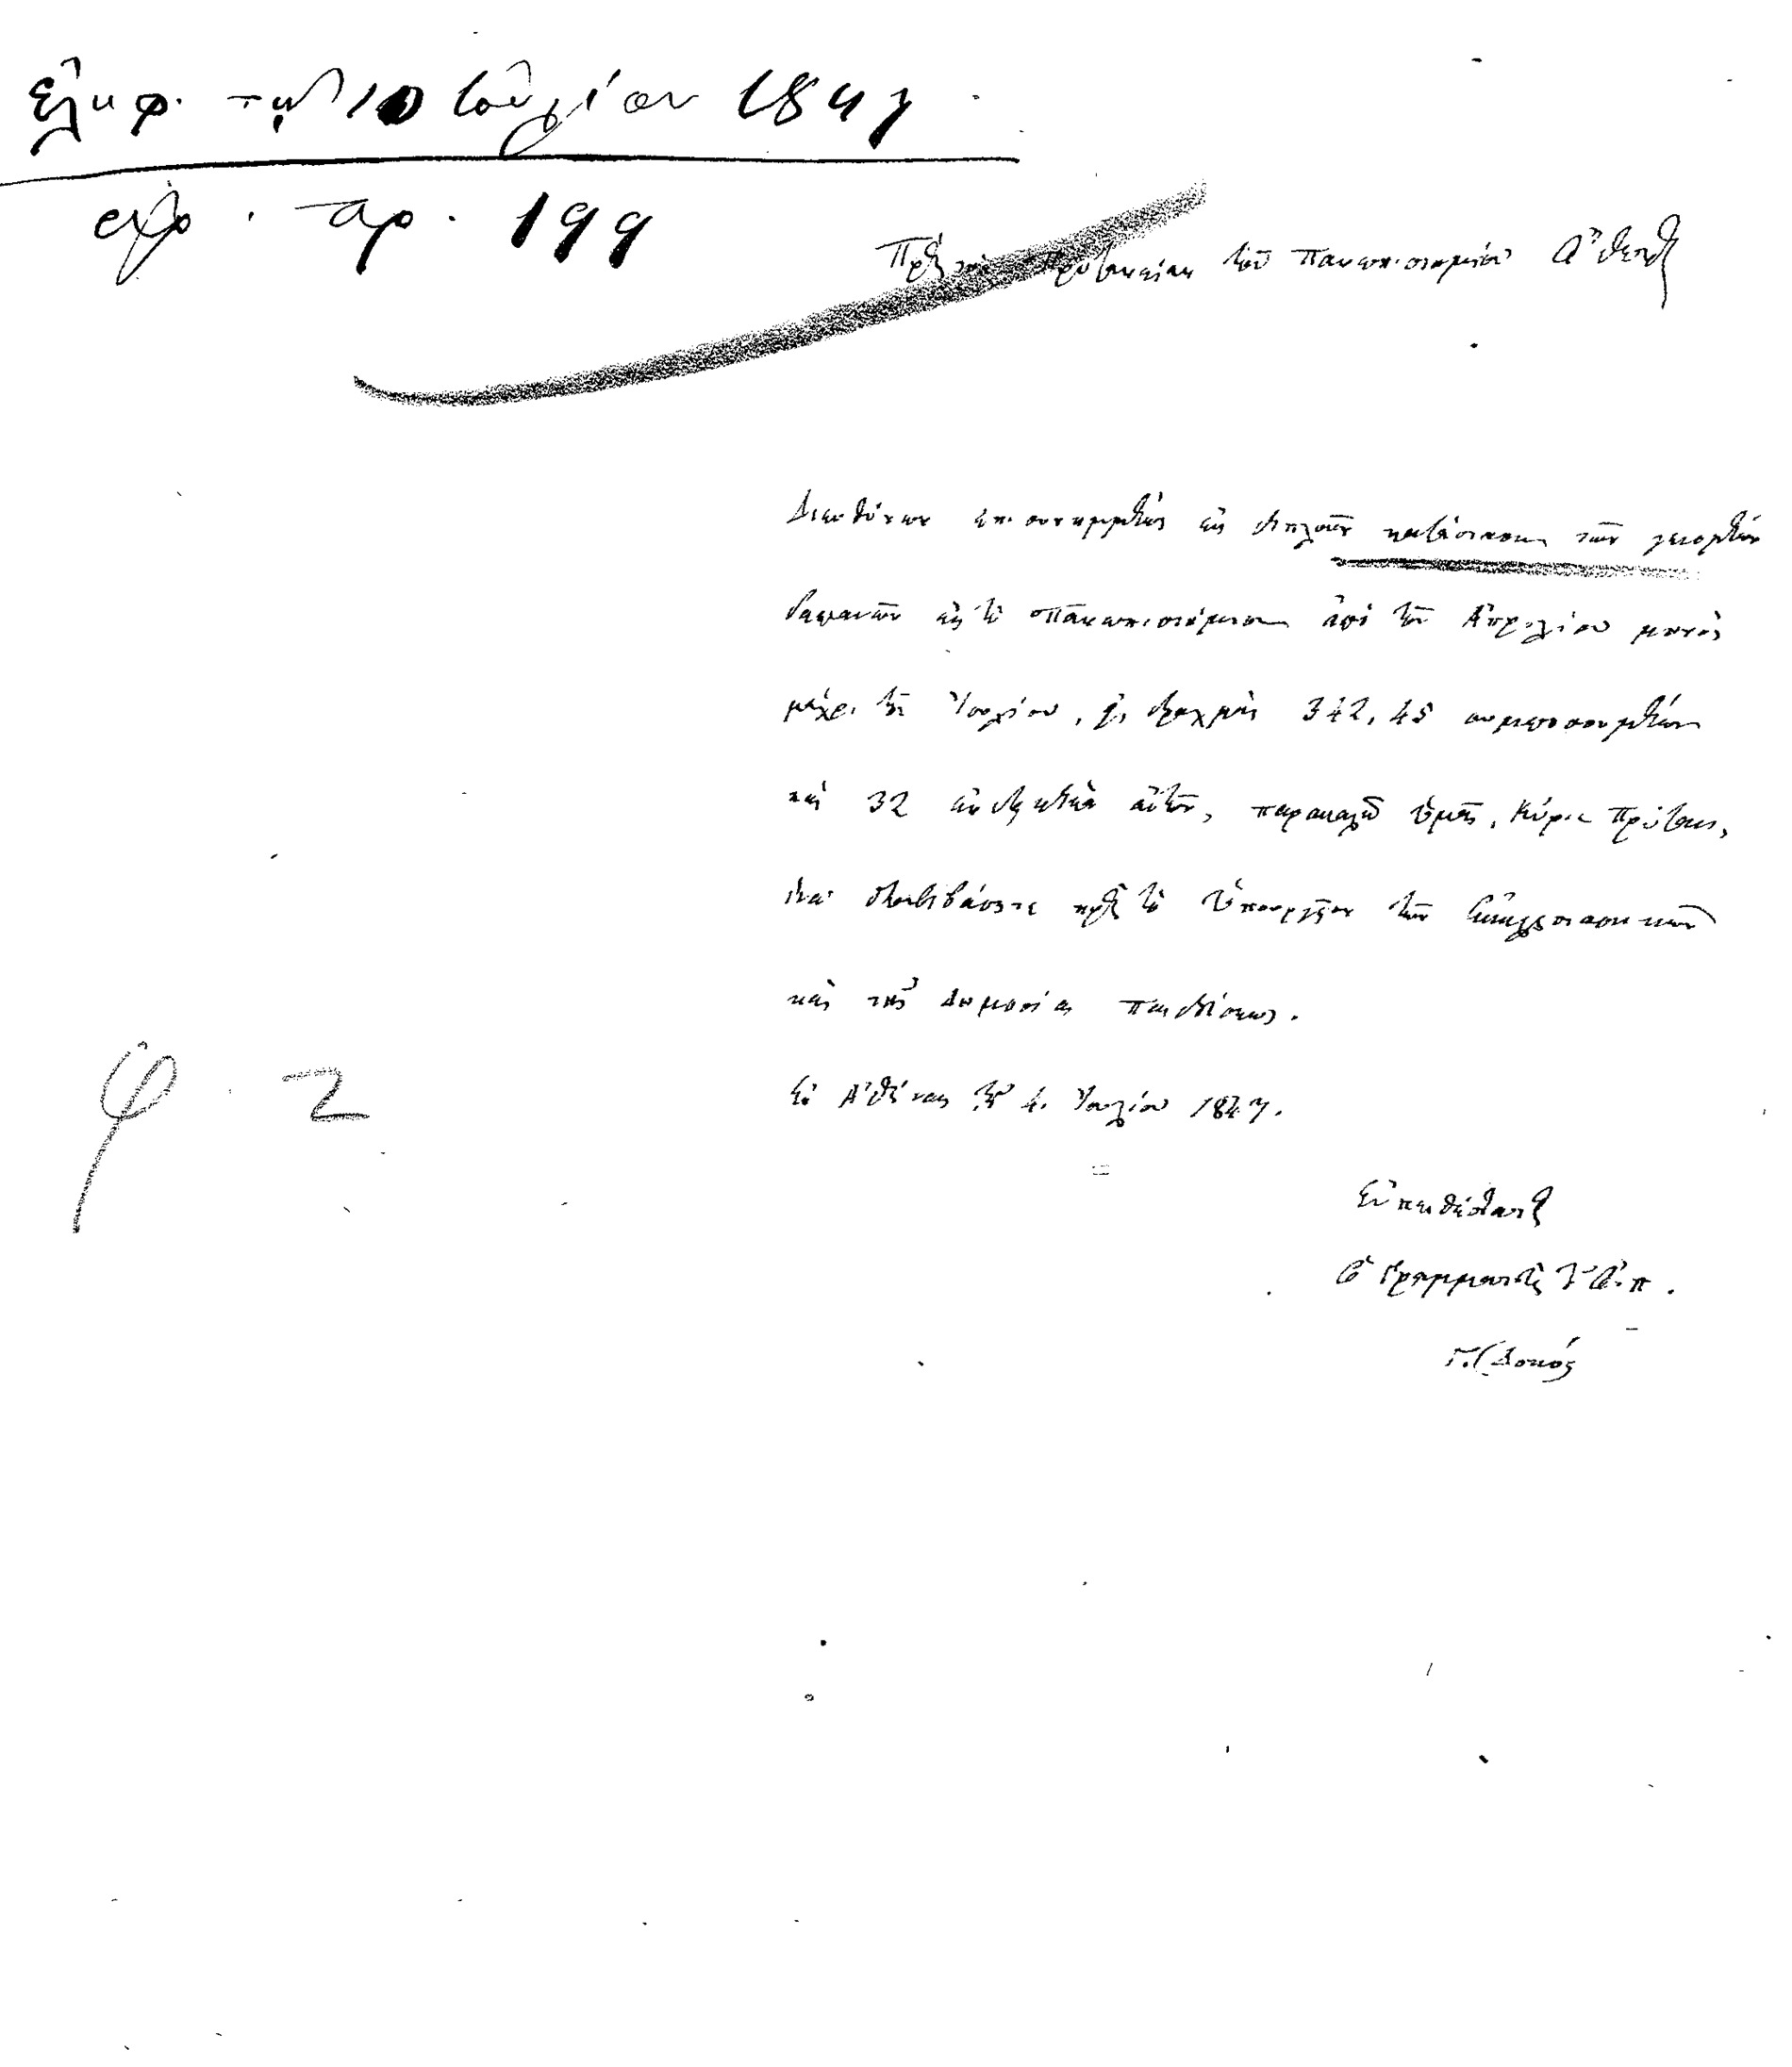 ἐλήφ. τὴν 10 Ἰουλίου 1847
ἀρ. πρ. 199
Πρὸς τὴν Πρυτανείαν τοῦ Πανεπιστημίου Ὄθωνος
Διευθύνων ἐπισυνημμένως εἰς διπλοῦν κατάστασιν τῶν γενομένων
δαπανῶν εἰς τὸ Πανεπιστήμιον ἀπὸ τοῦ Ἀπριλίου μηνὸς
μέχρι τοῦ Ἰουλίου, ἐκ δραχμὰς 342,45 συμποσουμένων
καὶ 32 ἀποδεικτικὰ αὐτῶν, παρακαλῶ ὑμᾶς, Κύριε Πρύτανι,
ἵνα διαβιβάσητε πρὸς τὸ Ὑπουργεῖον τῶν Ἐκκλησιαστικῶν
καὶ τῆς Δημοσίας παιδεύσεως.
Ἐν Ἀθήναις τῇ 4. Ἰουλίου 1847.
φ. 2
Εὐπειθέστατος
Ὁ Γραμματεὺς τοῦ Ὀ. π.
Δοκός